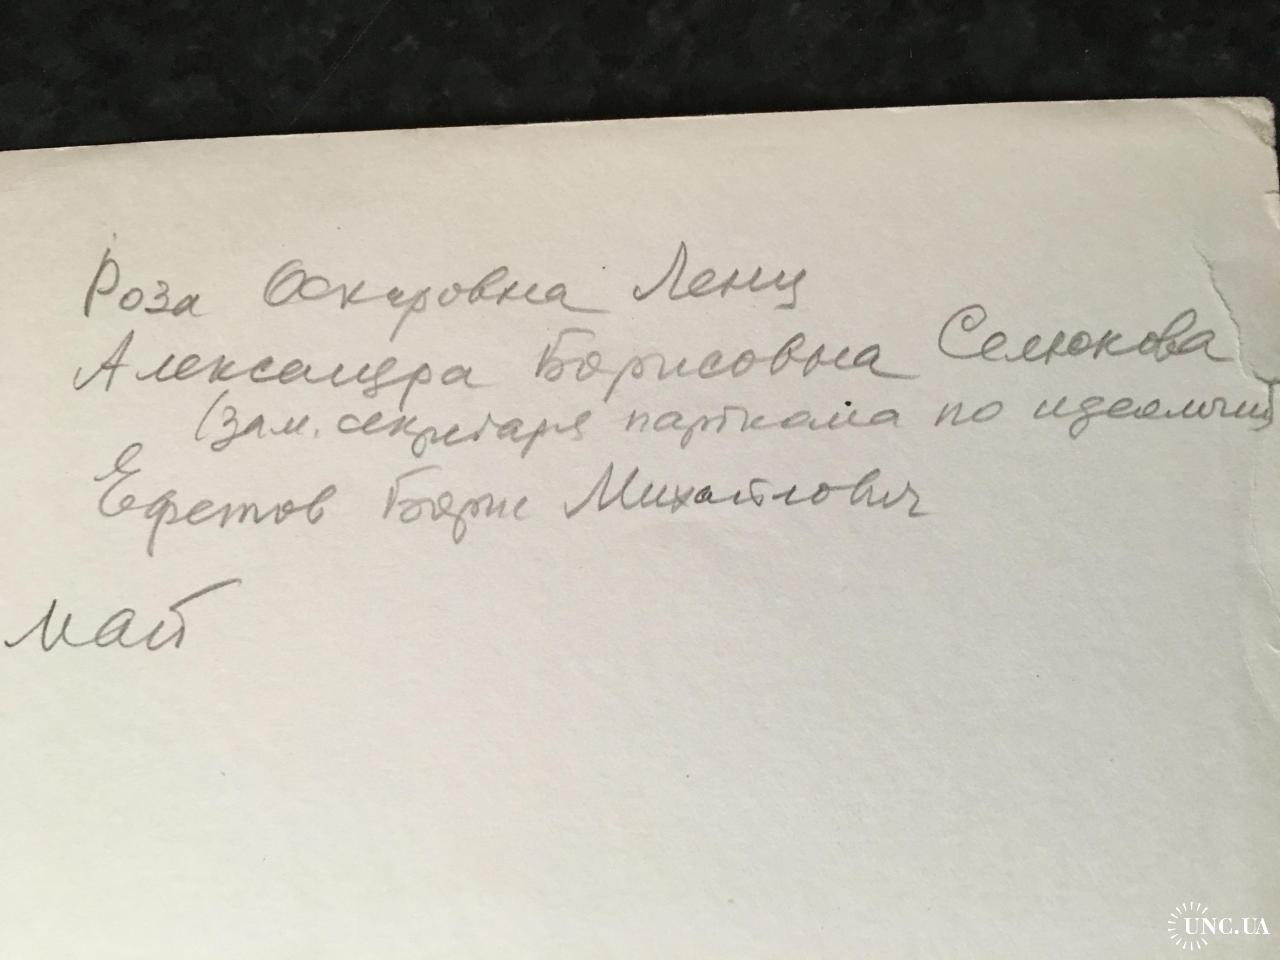 Роза Оскаровна Ленц
Александра Борисовна Селюкова
(зам. секретаря парткома по идеологии)
Ефетов Борис Михайлович
май
UNC.UA